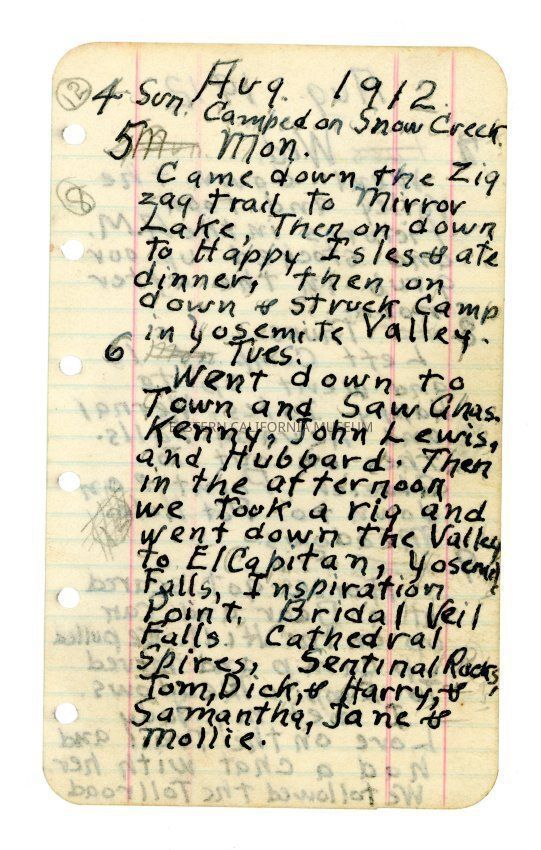 Aug. 1912.
12 4 Sun. Camped on Snow Creek.
5 Mon. Mon.
Came down the Zig
zag trail to Mirror
Lake, Then on down
to Happy Isles & ate
dinner, then on
down & struck Camp
in Yosemite Valley.
6 Tues.
Went down to
Town and Saw Chas.
Kenny, John Lewis,
EASTERN CALIFORNIA MUSEUM
and Hubbard. Then
in the afternoon
we Took a rig and
went down the Valley
to ElCapitan, Yosemite
Falls, Inspiration
Point, Bridal Veil
Falls Cathedral
Spires, Sentinal Rocks,
Tom, Dick, & Harry, &
Samantha, Jane &
Mollie.